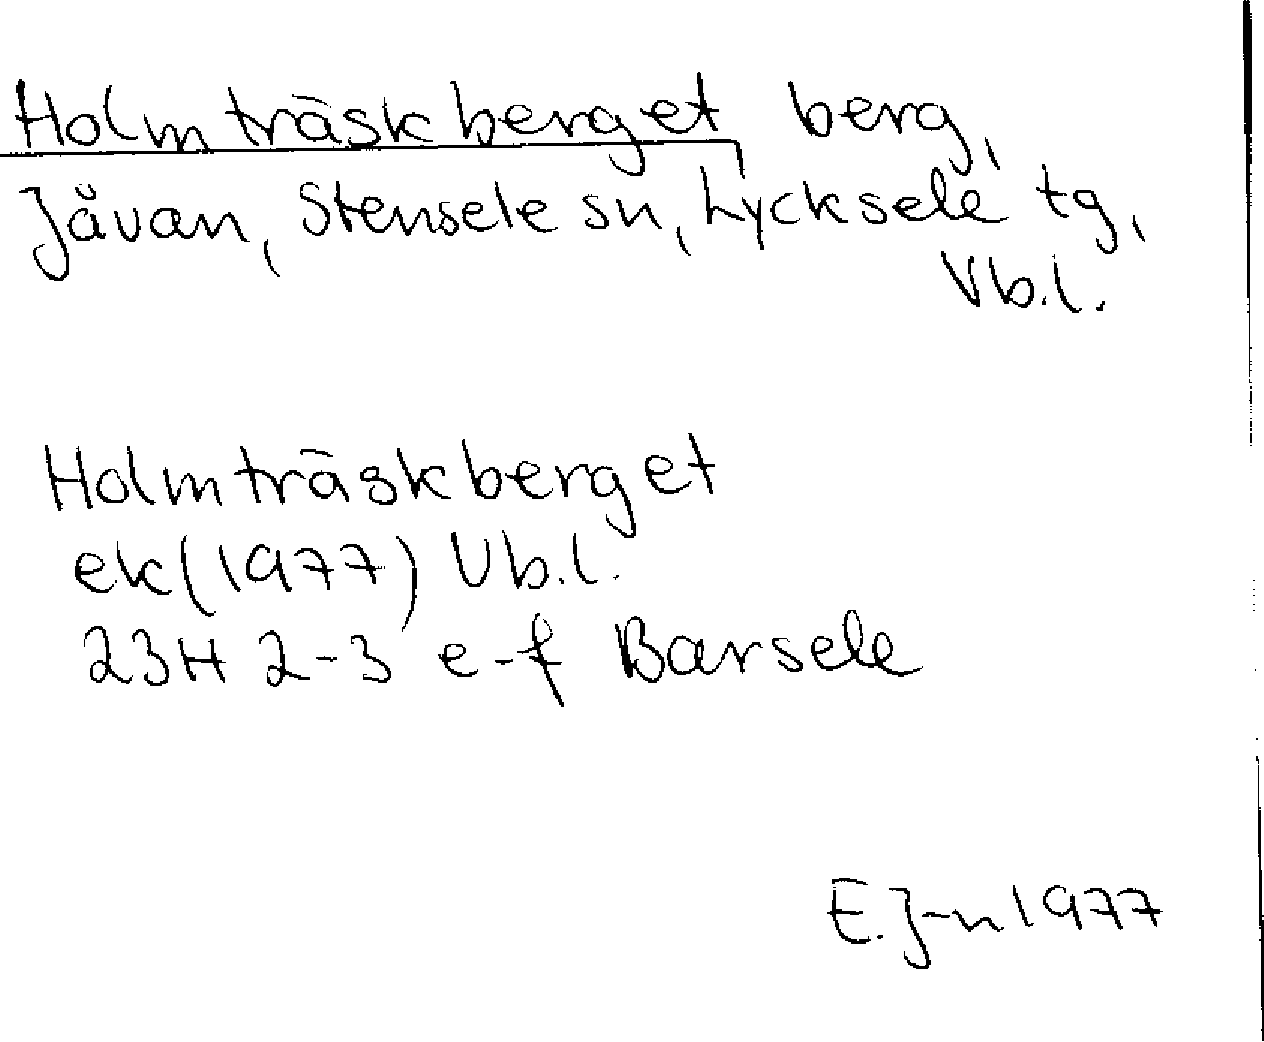 Holmträskberget berg,
Jåvan, Stensele sn, Lycksele tg,
Vb.l.
Holmträskberget
ek(1977) Vb.l.
23H 2-3 e-f Barsele
E.J-n 1977